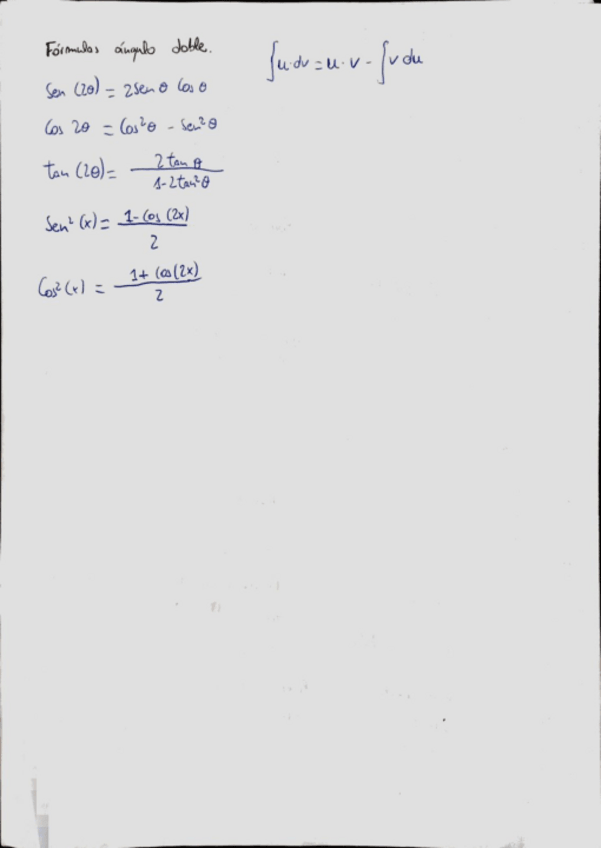 Fórmulas ángulo doble.
Sen (2θ) = 2 sen θ Cos θ
Cos 2θ = Cos²θ - Sen²θ
tan (2θ) = 2 tan θ / 1-2tan²θ
Sen² (x) = 1 - Cos (2x) / 2
Cos² (x) = 1 + Cos (2x) / 2
∫u·dv = u·v - ∫v du